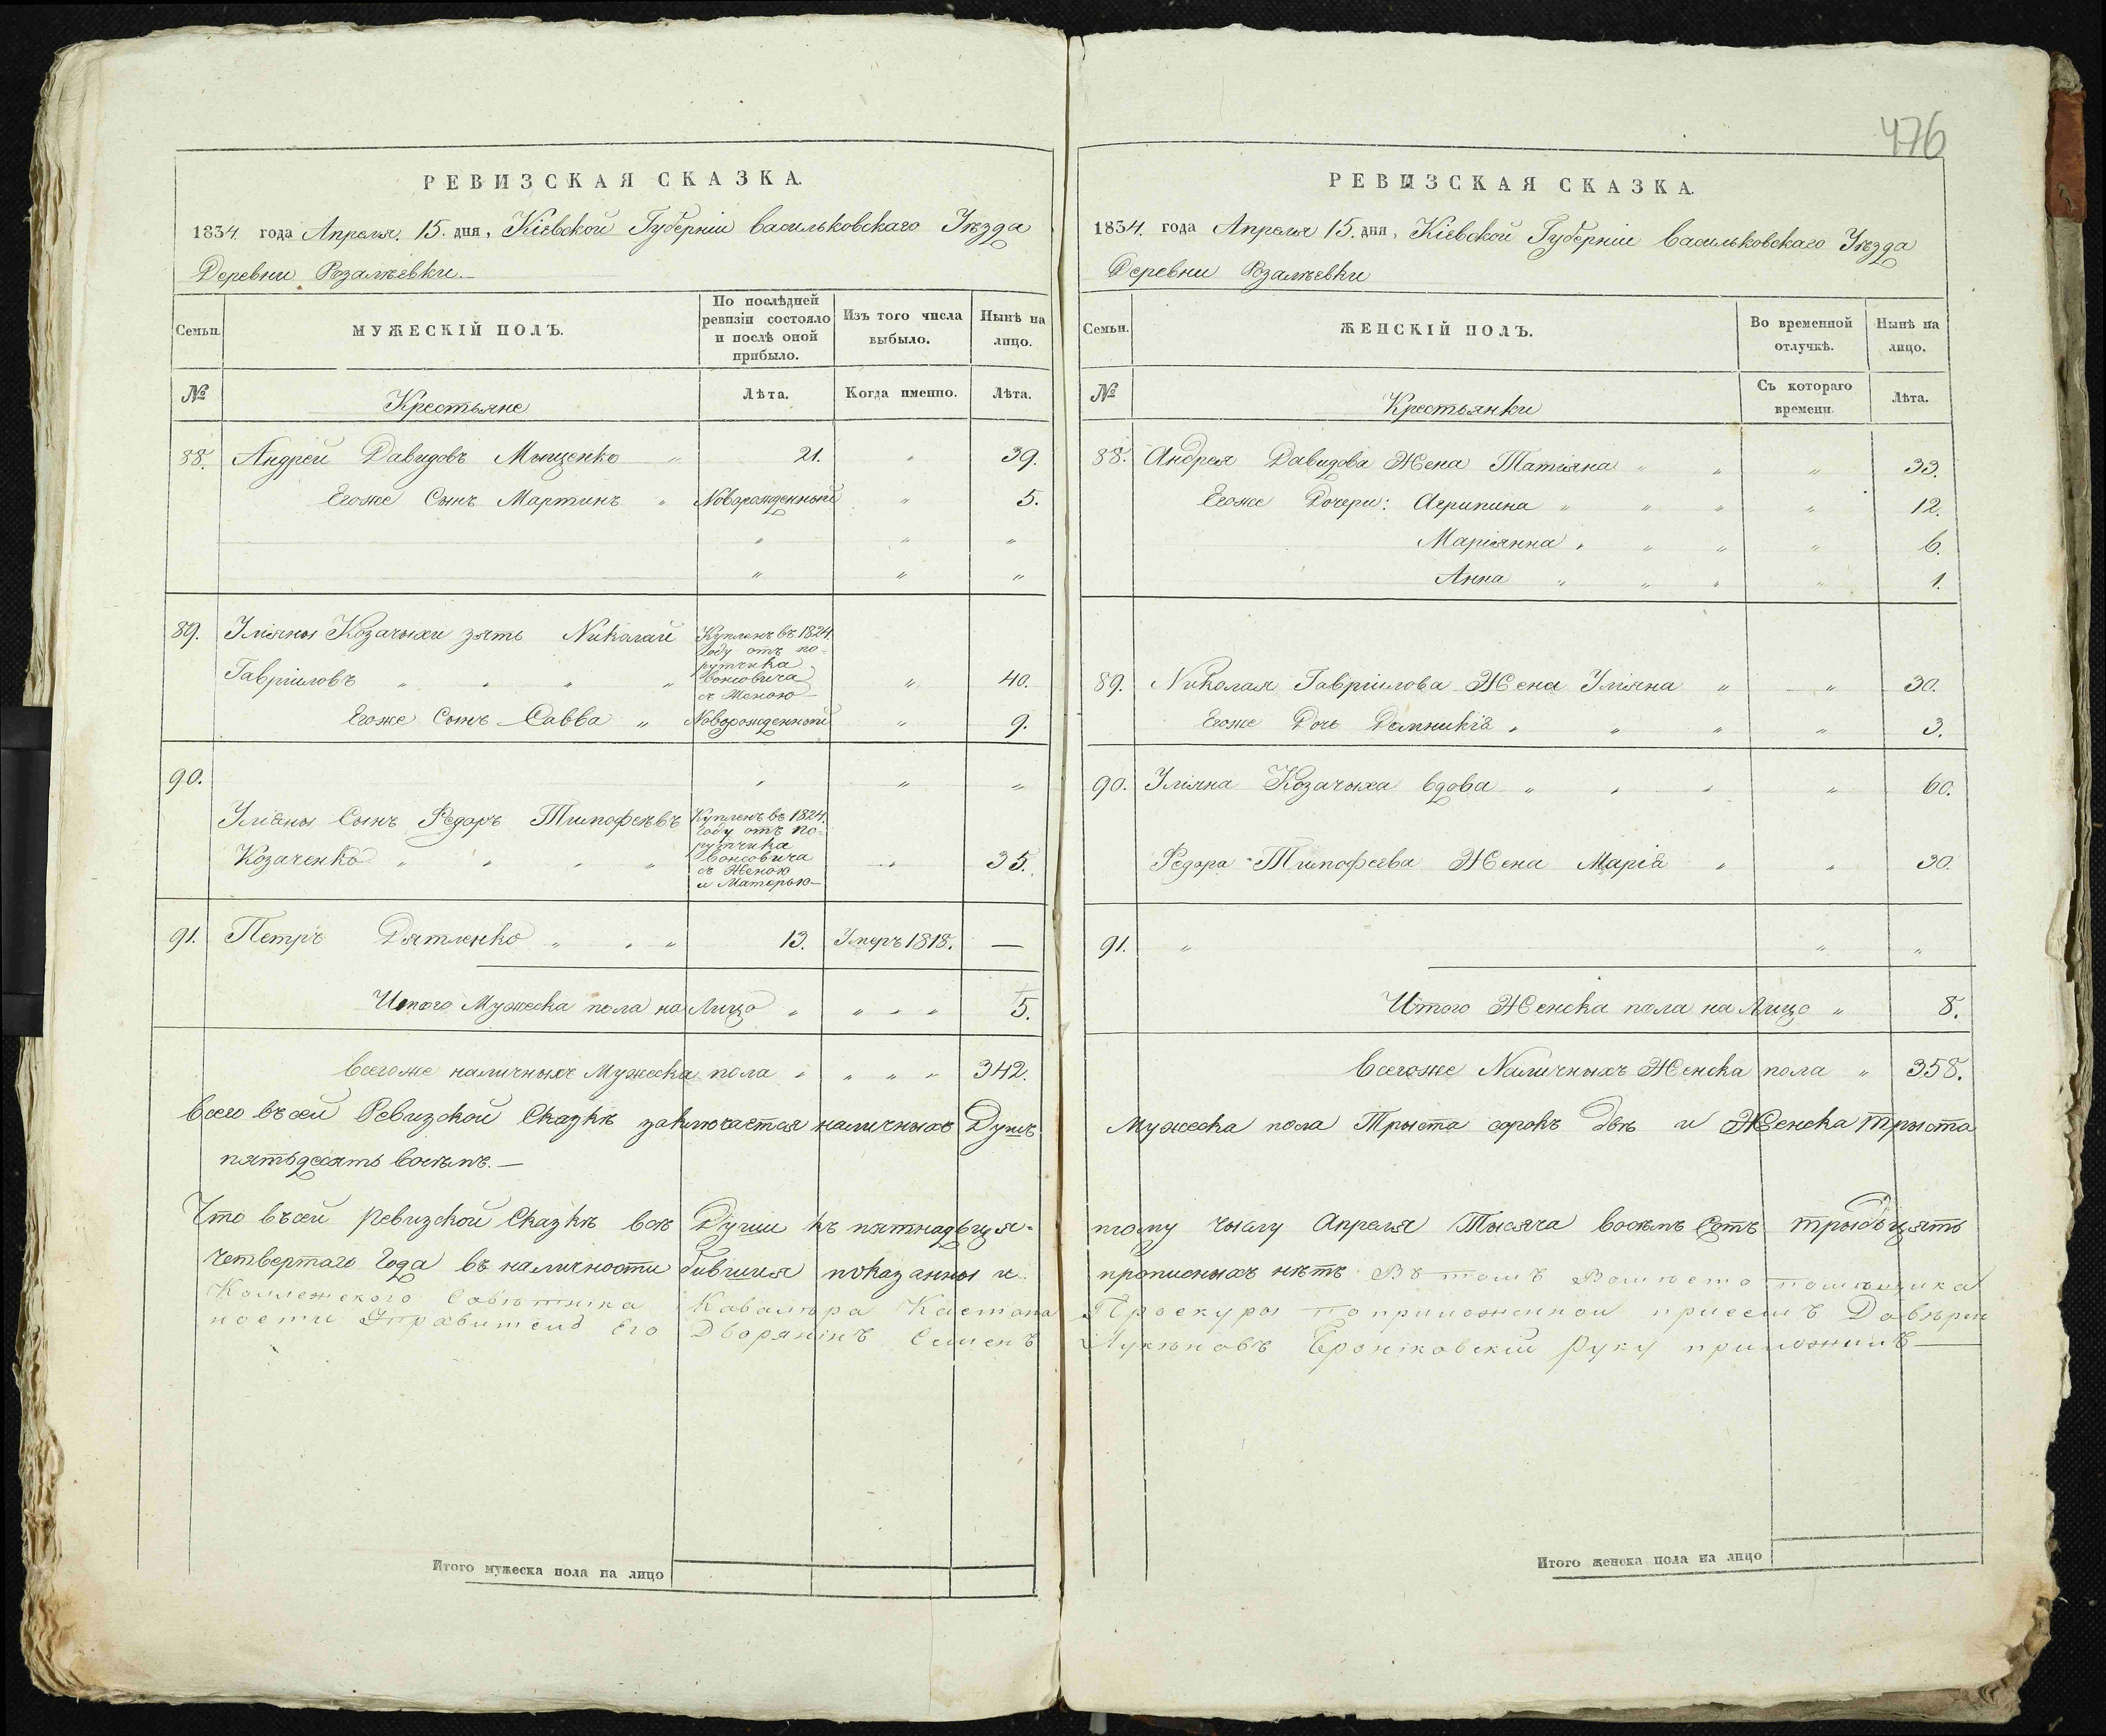 476
РЕВИЗСКАЯ СКАЗКА.
1834. года Апреля. 15. дня, Кіевской Губерніи Васильковскаго Уѣзда
Деревни Розалѣевки.
Семьи.
МУЖЕСКІЙ ПОЛЪ.
По послѣдней
ревизіи состояло
и послѣ оной
прибыло.
Изъ того числа
выбыло.
Нынѣ на
лицо.
№
Крестьяне
Лѣта.
Когда именно.
Лѣта.
88. Андрей Давидовъ Мыщенко „ 21. „ 39.
Егоже Сынъ Мартинъ „ Новорожденный „ 5.
„ „ „
„ „ „
89. Уліяны Козачыхи зять Николай
Гавріиловъ „ „ „ „
Купленъ въ 1824.
Году отъ по=
рутчика
Вонсовича
съ Женою
„ 40.
Егоже Сынъ Савва „ Новорожденный „ 9.
90. „ „ „
Уліяны Сынъ Федоръ Тимофеѣвъ
Козаченко „ „ „ „
Купленъ въ 1824.
году отъ по=
рутчика
Вонсовича
съ Женою
и Матерью
„ 35.
91. Петръ Дятленко „ „ „ 13. Умеръ 1818. —
Итого Мужеска пола на Лицо „ „ „ „ 5.
Всегоже наличныхъ Мужеска пола „ „ „ „ 342.
Всего въ сей Ревизской Сказкѣ заключается наличныхъ Душъ
пятьдесятъ восѣмъ.
Что въ сей Ревизской Сказкѣ всѣ Души къ пятнадьця=
четвертаго Года въ наличности бывшия показанны и
Коллежского Совѣтника Кавалѣра Каетана
ности Управитель Его Дворянинъ Семенъ
Итого мужеска пола на лицо
РЕВИЗСКАЯ СКАЗКА.
1834. года Апреля 15. дня, Кіевской Губерніи Васильковскаго Уѣзда
Деревни Розалѣевки
Семьи.
ЖЕНСКІЙ ПОЛЪ.
Во временной
отлучкѣ.
Нынѣ на
лицо.
№
Крестьянки
Съ котораго
времени.
Лѣта.
88. Андрея Давидова Жена Татіяна „ „ „ 33.
Егоже Дочери: Агрипина „ „ „ „ 12.
Маріянна „ „ „ „ 6.
Анна „ „ „ „ 1.
89. Николая Гавріилова Жена Уліяна „ „ 30.
Егоже Дочь Домникія „ „ „ „ 3.
90. Уліяна Козачыха вдова „ „ „ „ 60.
Федора Тимофеева Жена Марія „ „ 30.
91. „ „ „
Итого Женска пола на Лицо „ 8.
Всегоже Наличныхъ Женска пола „ 358.
Мужеска пола Трыста сорокъ двѣ и Женска Трыста
тому числу Апреля Тысяча восѣмъ Сотъ трыдьцять
прописныхъ нѣтъ Въ томъ Вомѣсто помѣщика
Проскуры по приложенной присемъ Довѣрен
Лукяновъ Броніковскій Руку приложилъ
Итого женска пола на лицо